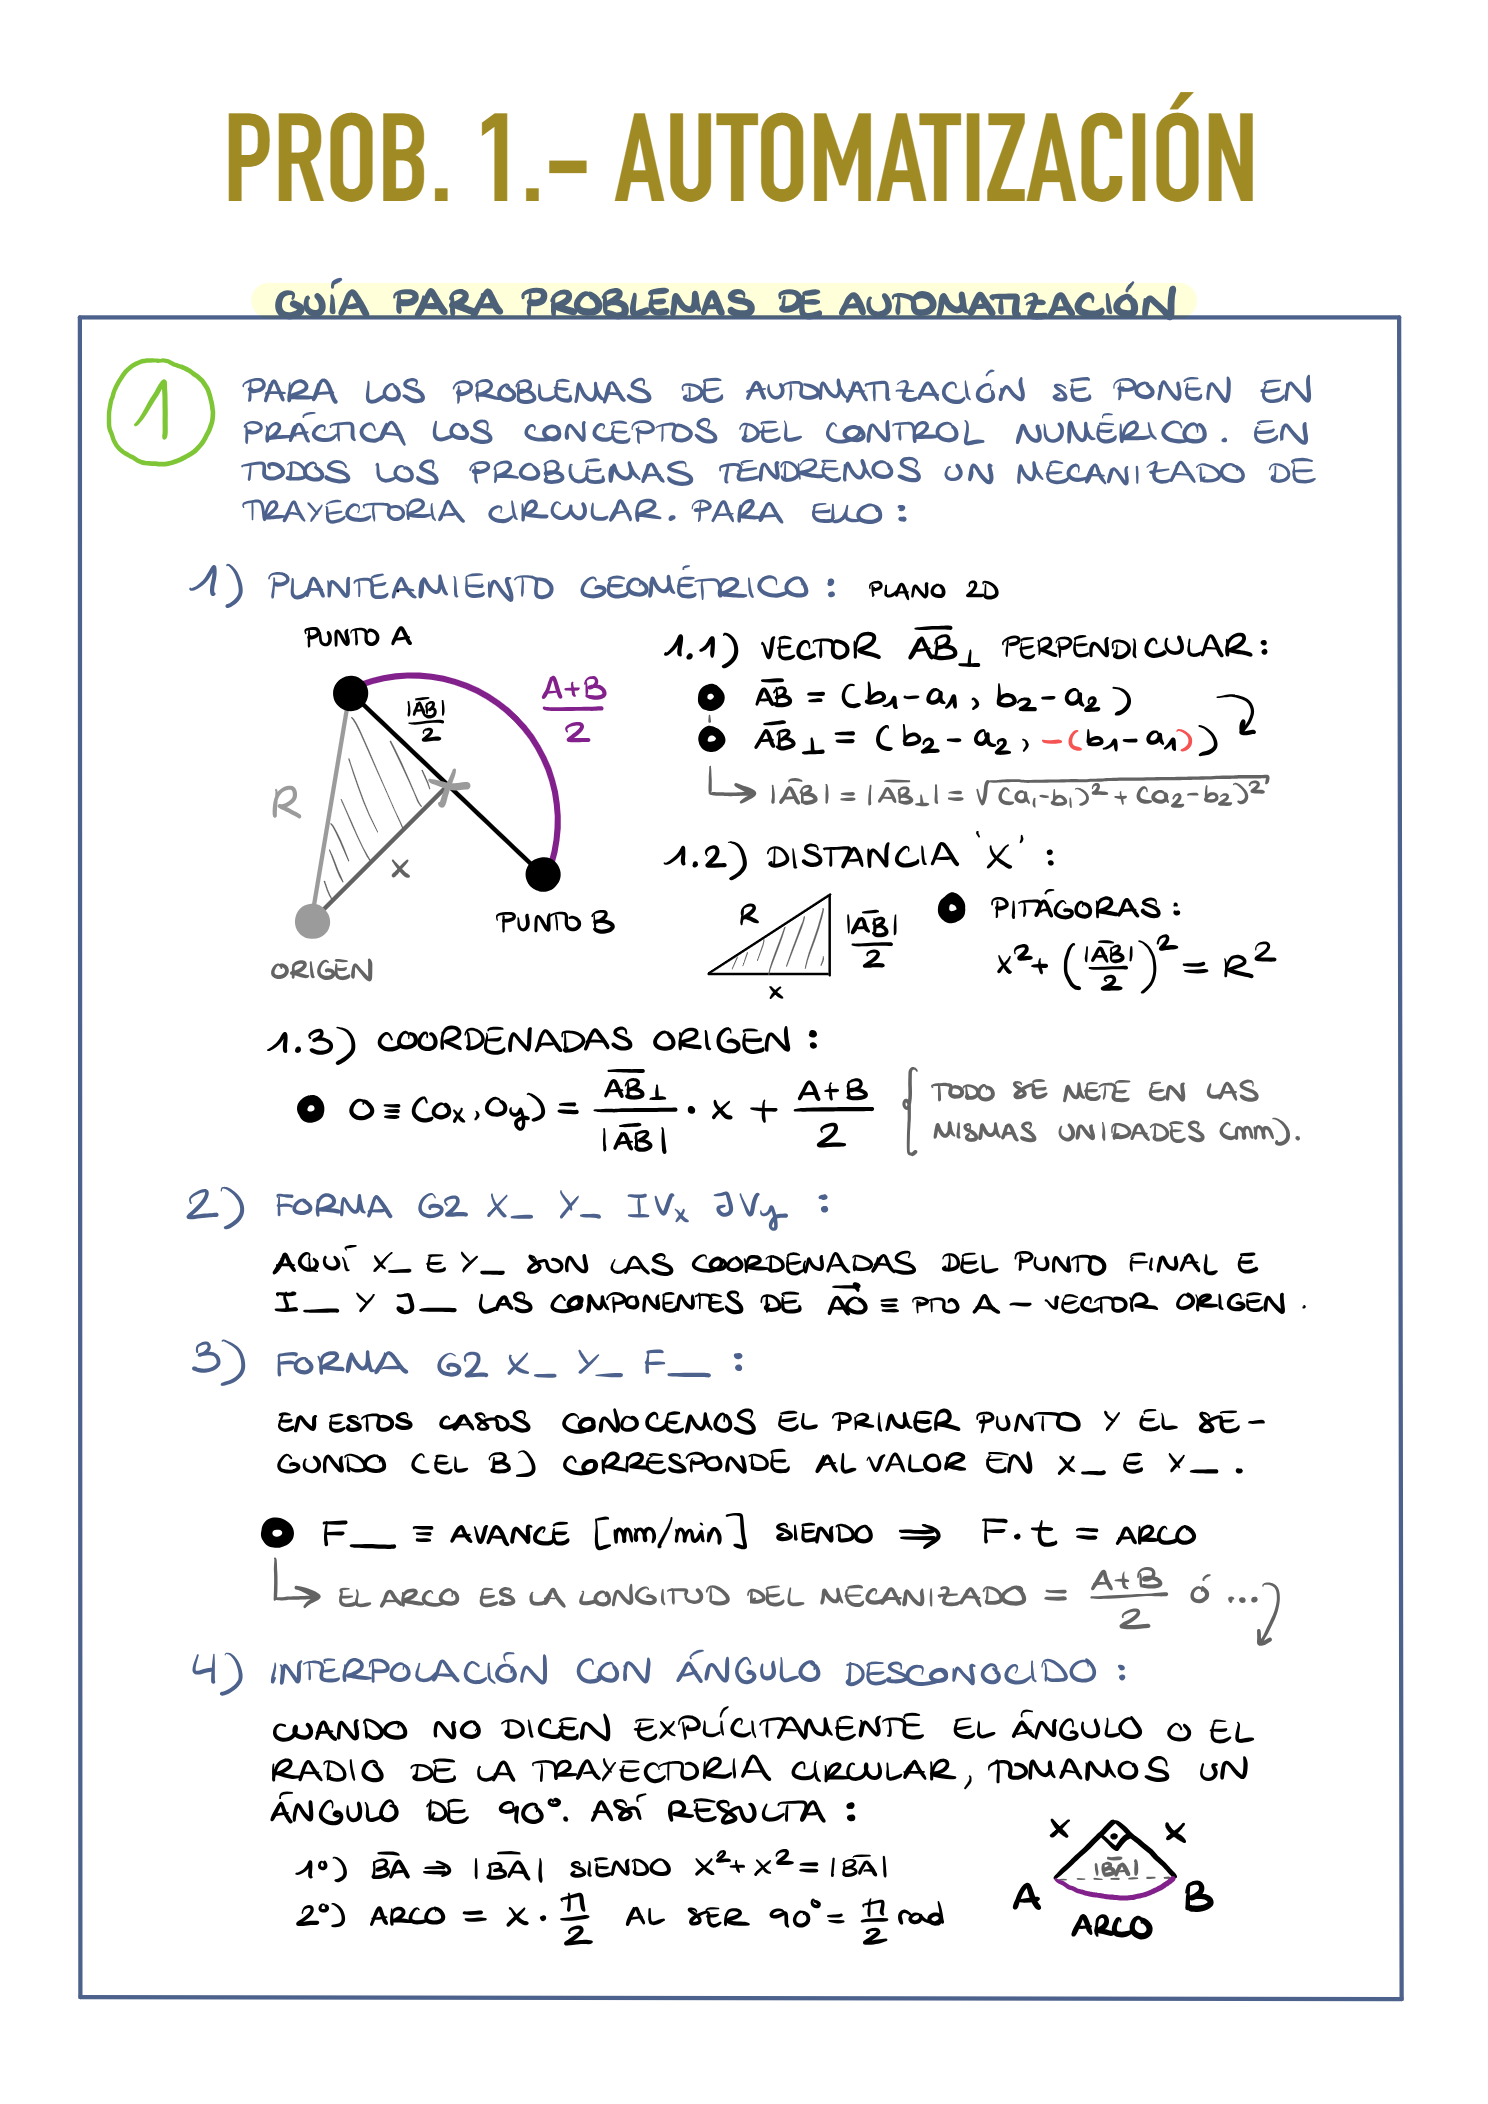 PROB. 1.- AUTOMATIZACIÓN
GUÍA PARA PROBLEMAS DE AUTOMATIZACIÓN
1
PARA LOS PROBLEMAS DE AUTOMATIZACIÓN SE PONEN EN
PRÁCTICA LOS CONCEPTOS DEL CONTROL NUMÉRICO. EN
TODOS LOS PROBLEMAS TENDREMOS UN MECANIZADO DE
TRAYECTORIA CIRCULAR. PARA ELLO:
1) PLANTEAMIENTO GEOMÉTRICO: PLANO 2D
PUNTO A
|AB|/2
A+B/2
R
x
PUNTO B
ORIGEN
1.1) VECTOR AB⊥ PERPENDICULAR:
AB = (b1-a1, b2-a2)
AB⊥ = (b2-a2, -(b1-a1))
|AB| = |AB⊥| = √(a1-b1)² + (a2-b2)²
1.2) DISTANCIA 'X':
R
|AB|/2
x
PITÁGORAS:
x² + (|AB|/2)² = R²
1.3) COORDENADAS ORIGEN:
O ≡ (Ox, Oy) = AB⊥/|AB| · x + A+B/2
TODO SE METE EN LAS
MISMAS UNIDADES (mm).
2) FORMA G2 X_ Y_ IVx JVy :
AQUÍ X_ E Y_ SON LAS COORDENADAS DEL PUNTO FINAL E
I_ Y J_ LAS COMPONENTES DE AO ≡ PTO A - VECTOR ORIGEN.
3) FORMA G2 X_ Y_ F_ :
EN ESTOS CASOS CONOCEMOS EL PRIMER PUNTO Y EL SE-
GUNDO (EL B) CORRESPONDE AL VALOR EN X_ E Y_.
F_ ≡ AVANCE [mm/min] SIENDO ⇒ F·t = ARCO
EL ARCO ES LA LONGITUD DEL MECANIZADO = A+B/2 Ó ...
4) INTERPOLACIÓN CON ÁNGULO DESCONOCIDO:
CUANDO NO DICEN EXPLÍCITAMENTE EL ÁNGULO O EL
RADIO DE LA TRAYECTORIA CIRCULAR, TOMAMOS UN
ÁNGULO DE 90°. ASÍ RESULTA:
1º) BA ⇒ |BA| SIENDO x² + x² = |BA|
2º) ARCO = x · π/2 AL SER 90° = π/2 rad
x x
|BA|
A B
ARCO